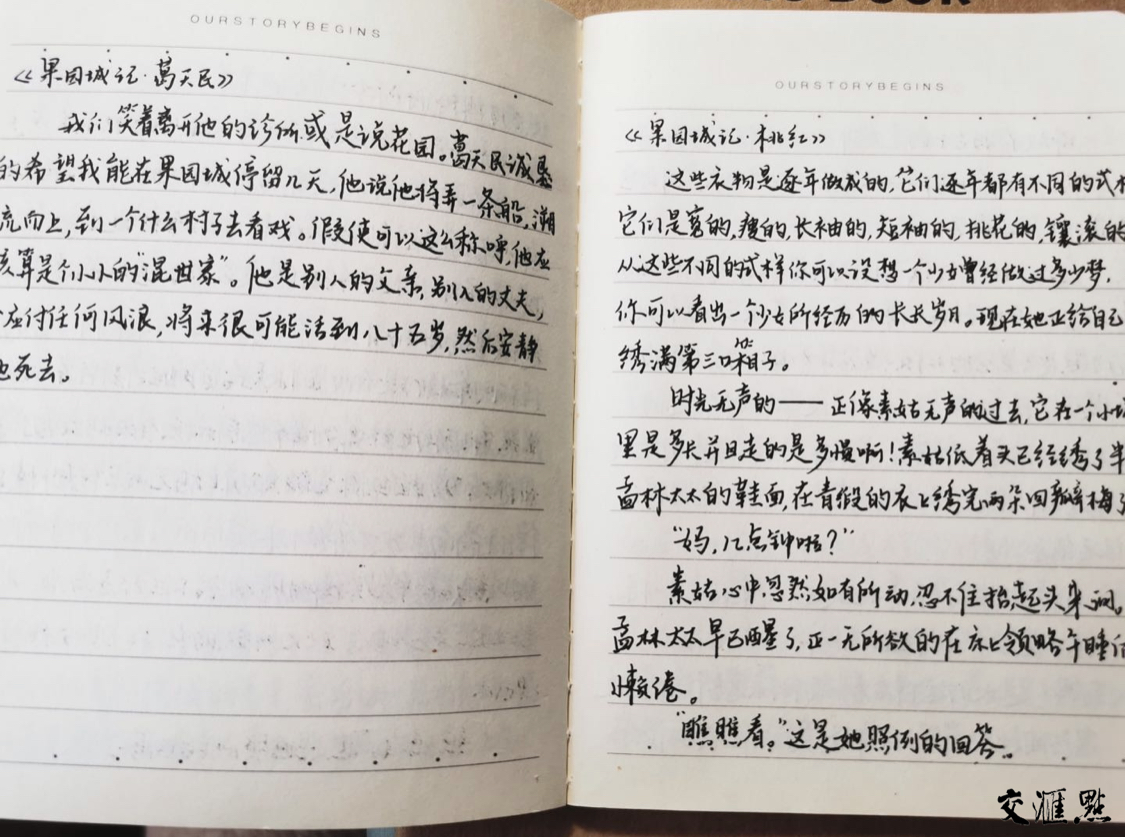 OURSTORYBEGINS
《果园城记·葛天民》
我们笑着离开他的诊所或是说花园。葛天民诚恳
的希望我能在果园城停留几天,他说他将弄一条船,溯
流而上,到一个什么村子去看戏。假使可以这么称呼,他应
该算是个小小的“混世家”。他是别人的父亲,别人的丈夫,
应付任何风浪,将来很可能活到八十五岁,然后安静
地死去。
BOOK
OURSTORYBEGINS
《果园城记·桃红》
这些衣物是逐年做成的,它们逐年都有不同的式样
它们是宽的,瘦的,长袖的,短袖的,挑花的,镶滚的
从这些不同的式样你可以设想一个少女曾经做过多少梦,
你可以看出一个少女所经历的长长岁月。现在她正给自己
绣满第三口箱子。
时光无声的——正像素姑无声的过去,它在一个小城
里是多长并且走的是多慢啊!素姑低着头已经绣了半
孟林太太的鞋面,在青缎的衣上绣完两朵四瓣梅
“妈,几点钟啦?”
素姑心中忽然如有所动,忍不住抬起头来问。
孟林太太早已醒了,正一无所欲的在床上领略午睡
懒倦。
“瞧瞧看。”这是她照例的回答。
交汇點